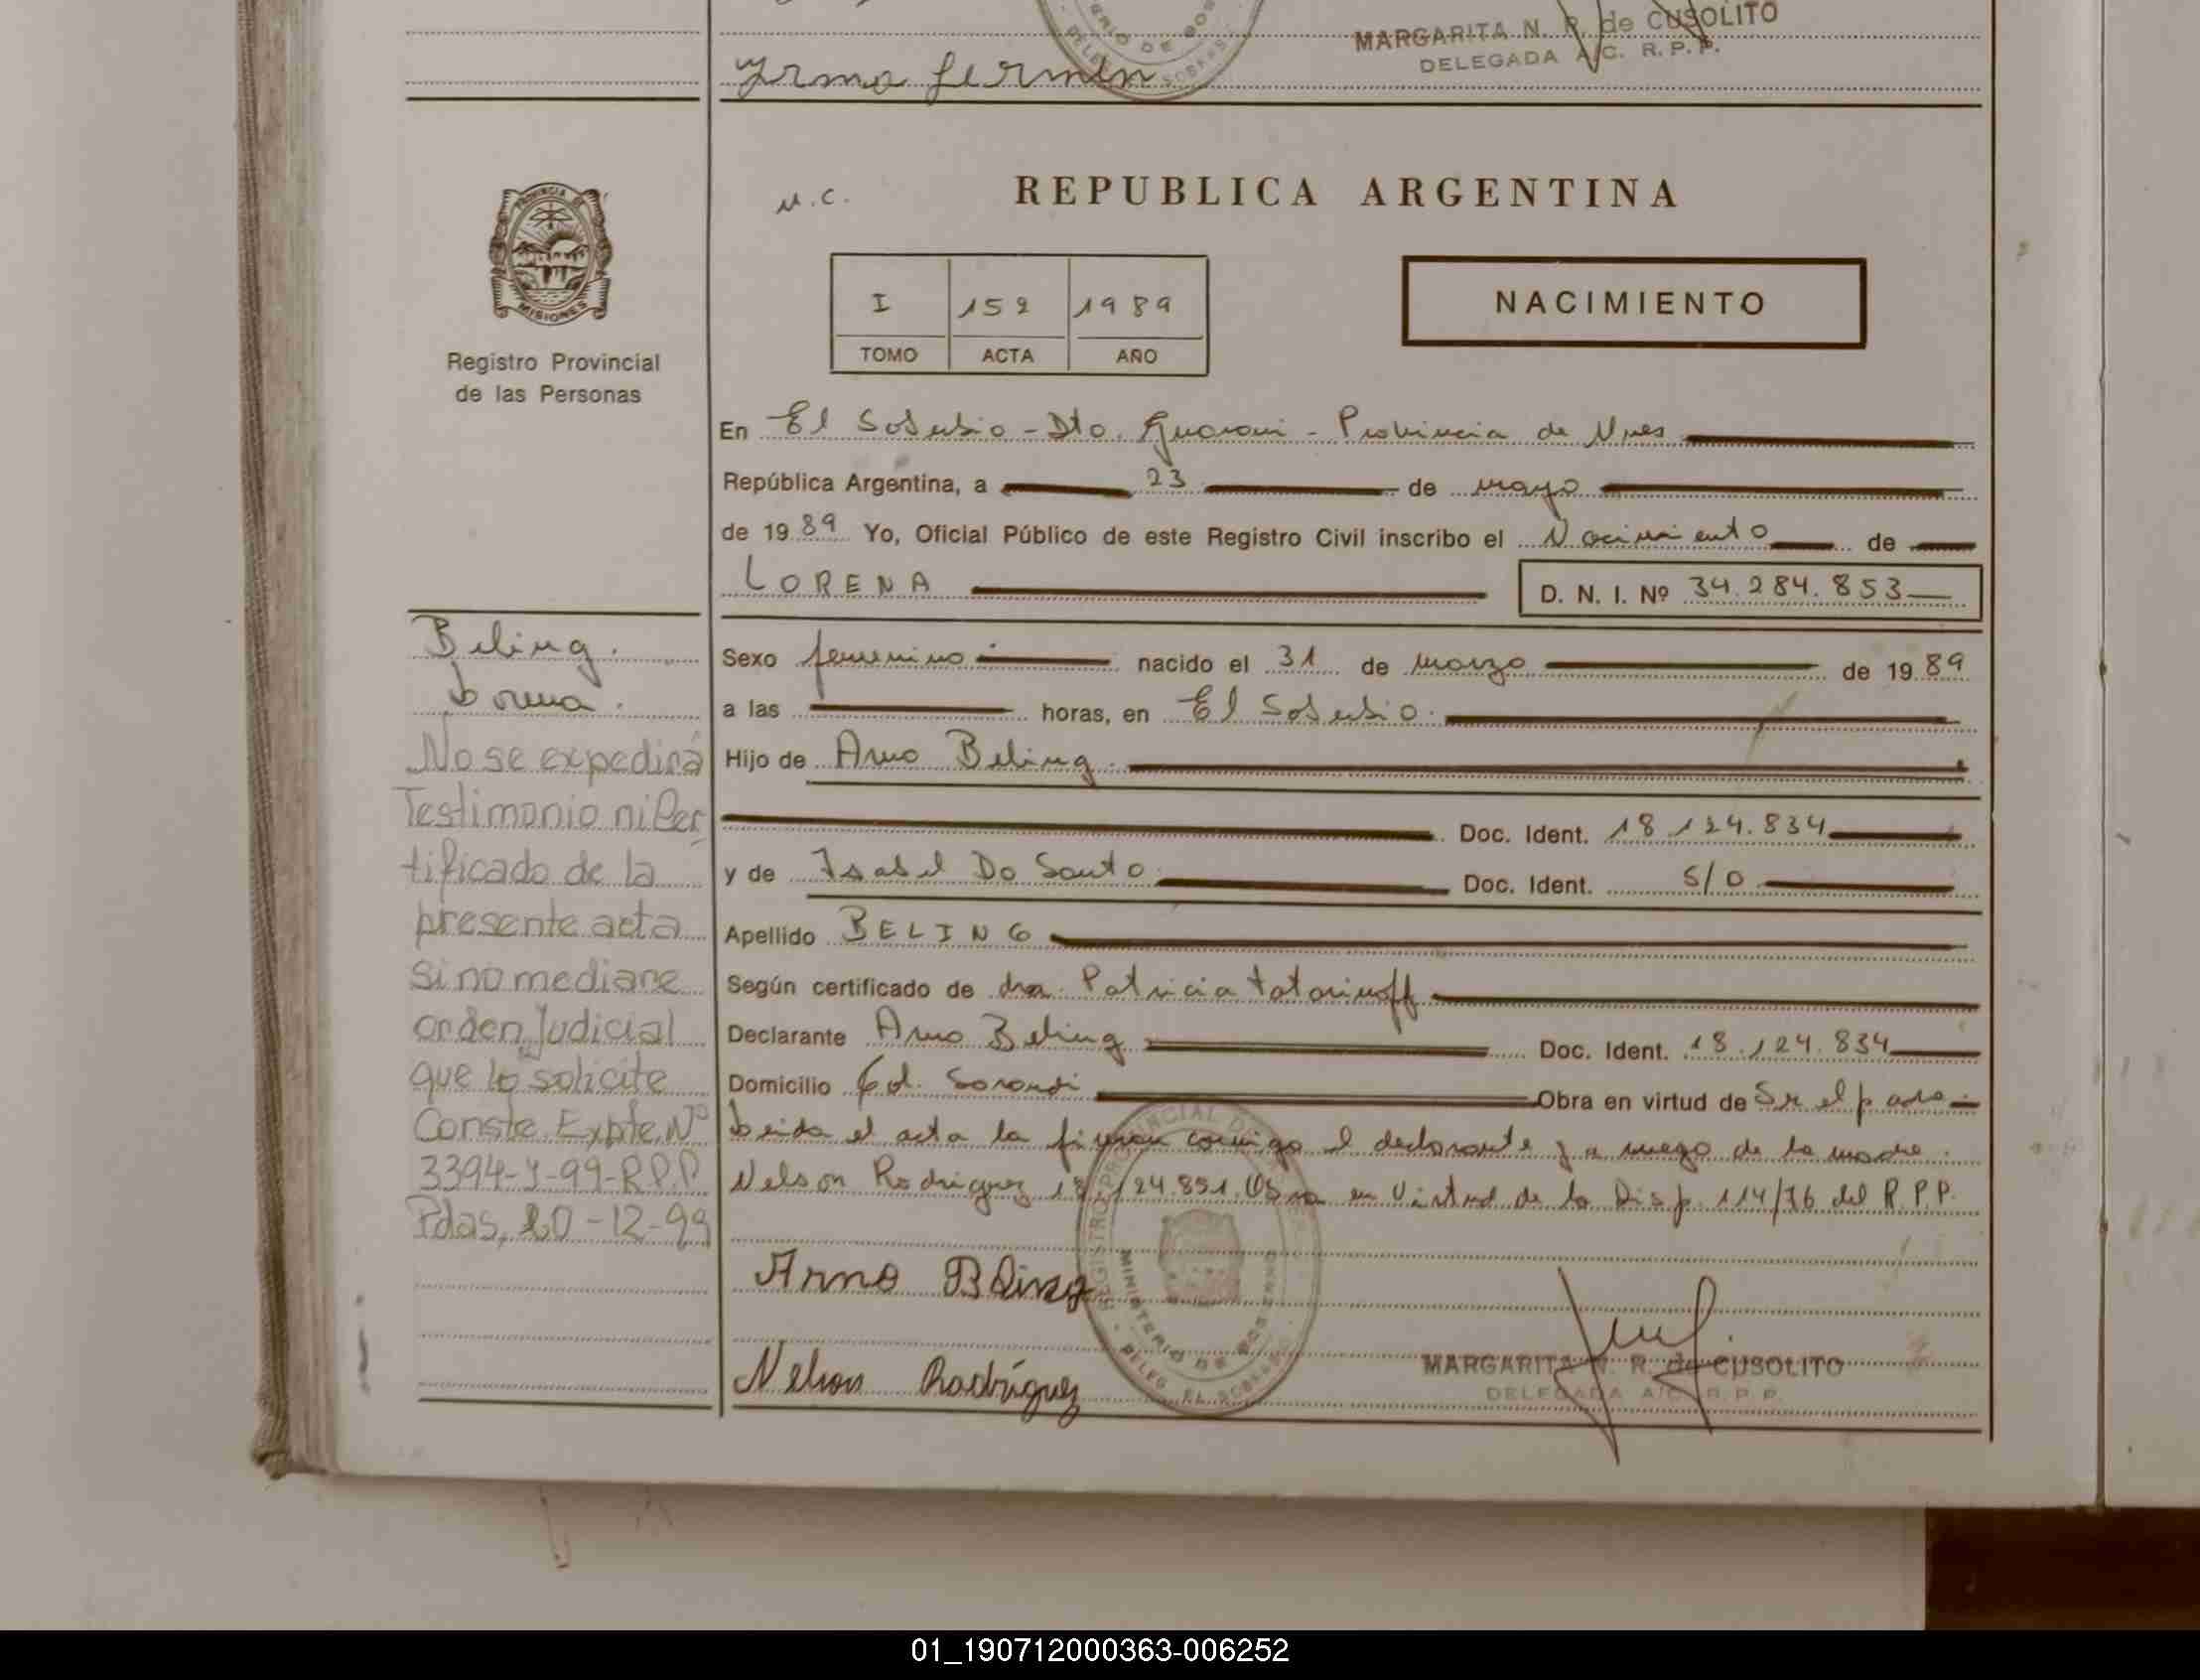 MARGARITA N. R. de CUSOLITO
DELEGADA A/C. R. P. P.
Yrma fermin
M.C.
REPUBLICA ARGENTINA
PROVINCIA DE
MISIONES
Registro Provincial
de las Personas
I 152 1989
TOMO ACTA AÑO
NACIMIENTO
En El Soberbio - Dto. Guarani - Provincia de Mnes
República Argentina, a 23 de mayo
de 19 89 Yo, Oficial Público de este Registro Civil inscribo el Nacimiento de
LORENA D. N. I. Nº 34.284.853
Beling.
Lorena.
No se expedirá
Testimonio ni Cer
tificado de la
presente acta
si no mediare
orden Judicial
que lo solicite
Conste. Expte. Nº
3394-Y-99-R.P.P
Pdas, 20-12-99
Sexo femenino nacido el 31 de marzo de 19 89
a las horas, en El Soberbio.
Hijo de Arno Beling.
Doc. Ident. 18.124.834
y de Isabel Do Santo Doc. Ident. S/D
Apellido BELING
Según certificado de dra. Patricia Tatarinoff
Declarante Arno Beling Doc. Ident. 18.124.834
Domicilio Col. Sarandi Obra en virtud de Sr el padre
Leida el acta la firman conmigo el declarante y a ruego de la madre.
Nelson Rodriguez 18.124.851. Obra en Virtud de la Disp. 114/76 del R.P.P.
Arno Bling
Nelson Rodríguez
REGISTRO PROVINCIAL DE
MINISTERIO DE GOBIERNO
DELEG. EL SOBERBIO
MARGARITA N. R. de CUSOLITO
DELEGADA A/C. R. P. P.
01_190712000363-006252